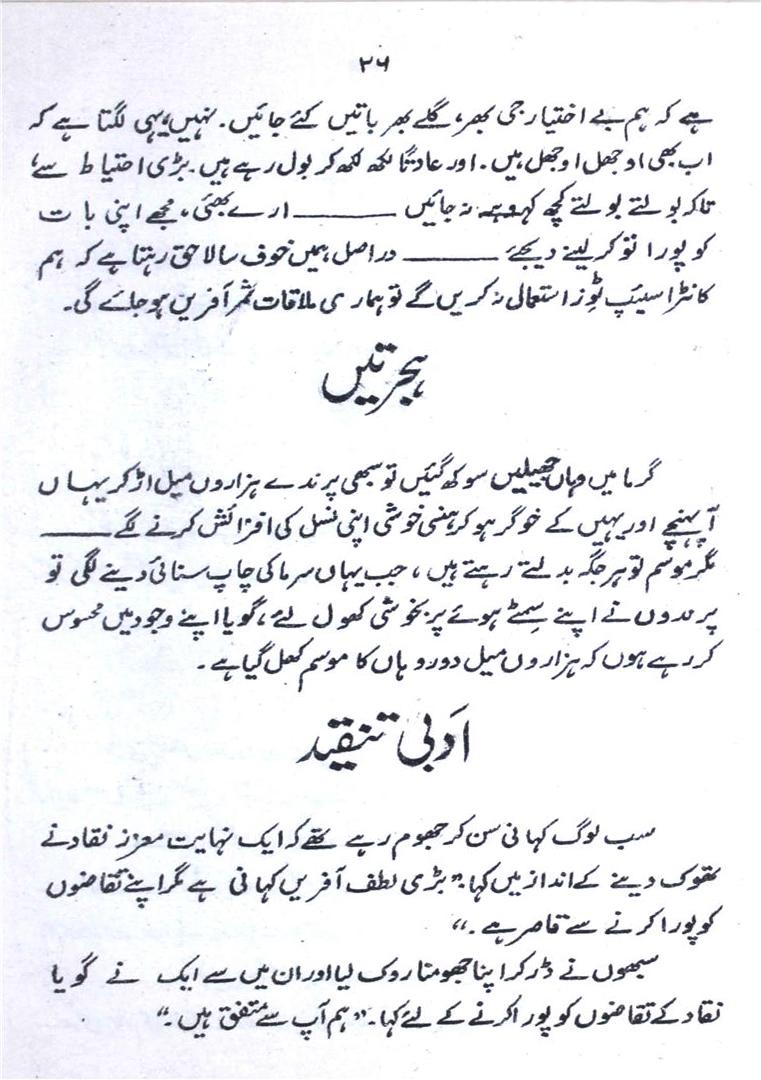 ۲۶
ہے کہ ہم بے اختیار جی بھر، گلے بھر باتیں کئے جائیں۔ نہیں، یہی لگتا ہے کہ
اب بھی اوجھل اوجھل ہیں۔ اور عادتاً لکھ لکھ کر بول رہے ہیں۔ بڑی احتیاط سے،
تاکہ بولتے بولتے کچھ کہہ وہہ نہ جائیں ــــــــ ارے بھئی، مجھے اپنی بات
کو پورا تو کر لینے دیجئے ــــــــ دراصل ہمیں خوف سا لاحق رہتا ہے کہ ہم
کانٹراسیپٹِوز استعمال نہ کریں گے تو ہماری ملاقات ثمر آفریں ہو جائے گی۔
ہجرتیں
گرما میں وہاں جھیلیں سوکھ گئیں تو سبھی پرندے ہزاروں میل اڑ کر یہاں
آ پہنچے اور یہیں کے خوگر ہو کر ہنسی خوشی اپنی نسل کی افزائش کرنے لگے ــــــــ
مگر موسم تو ہر جگہ بدلتے رہتے ہیں، جب یہاں سرما کی چاپ سنائی دینے لگی تو
پرندوں نے اپنے سمٹے ہوئے پر بخوشی کھول لئے، گویا اپنے وجود میں محسوس
کر رہے ہوں کہ ہزاروں میل دور وہاں کا موسم کھل گیا ہے۔
ادَبی تنقید
سب لوگ کہانی سن کر جھوم رہے تھے کہ ایک نہایت معزز نقاد نے
تھوک دینے کے انداز میں کہا۔ ”بڑی لطف آفریں کہانی ہے مگر اپنے تقاضوں
کو پورا کرنے سے قاصر ہے۔“
سبھوں نے ڈر کر اپنا جھومنا روک لیا اور ان میں سے ایک نے گویا
نقاد کے تقاضوں کو پورا کرنے کے لئے کہا۔ ”ہم آپ سے متفق ہیں۔“